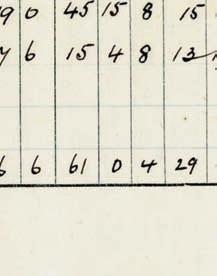 9 0 45 15 8 15
7 6 15 4 8 13
6 6 61 0 4 29